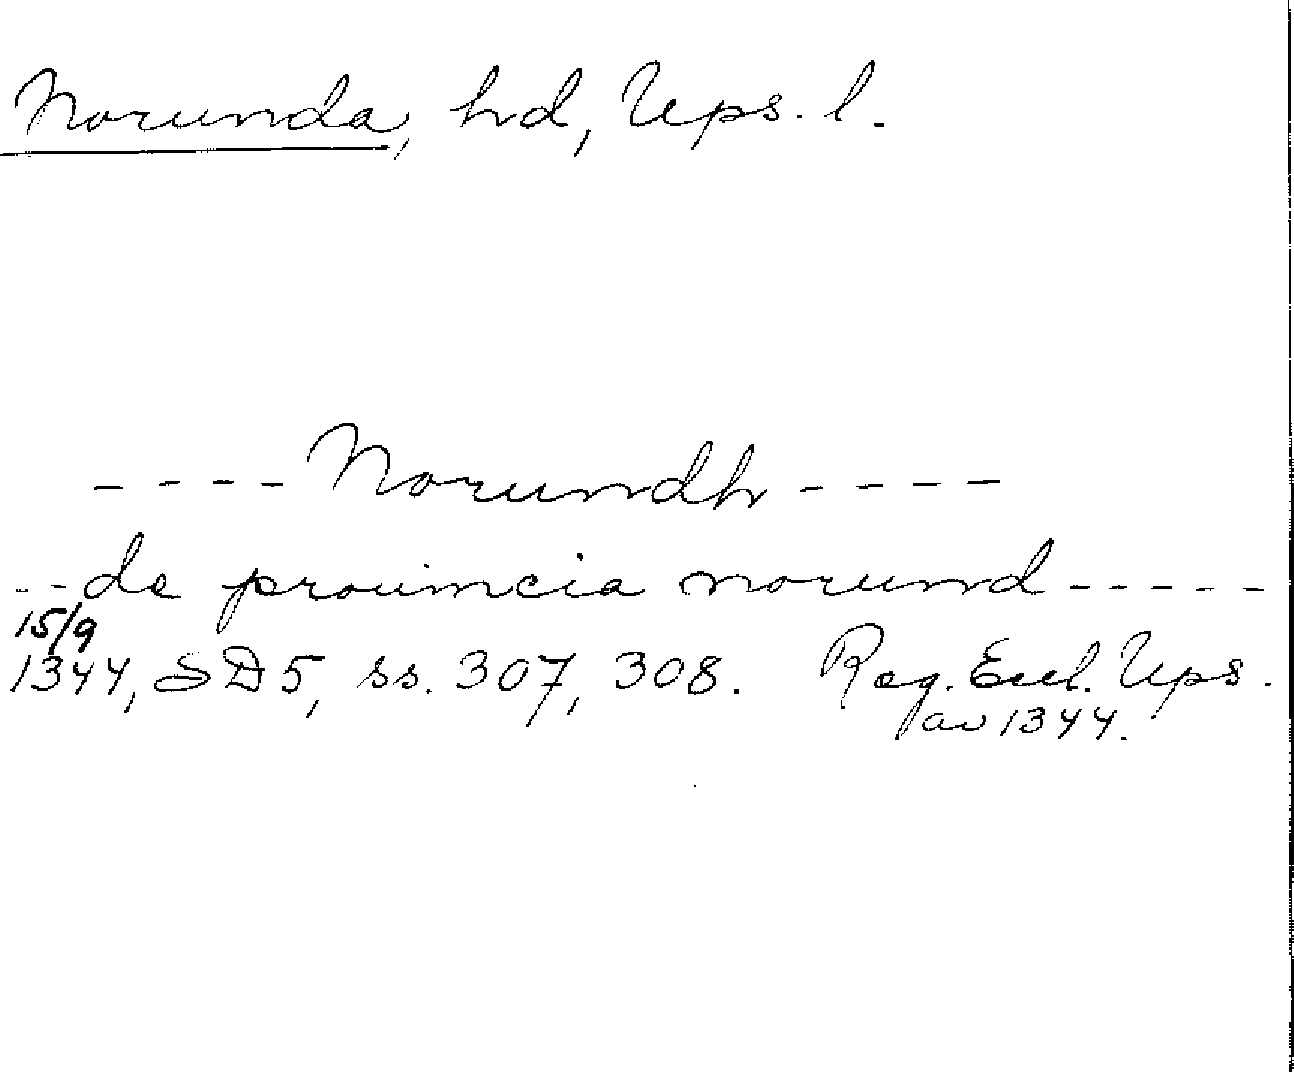 Norunda, hd, Ups. l.
- - - - Norundh - - - -
- - de prouincia norund - - - - -
15/9
1344, SD 5, ss. 307, 308. Reg. Eccl. Ups.
av 1344.